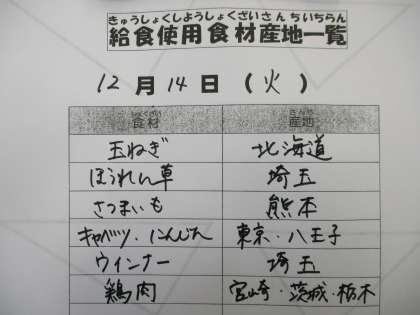 きゅうしょくしようしょくざいさんちいちらん
給食使用食材産地一覧
12月14日（火）
食材 産地
玉ねぎ 北海道
ほうれん草 埼玉
さつまいも 熊本
キャベツ・にんじん 東京・八王子
ウインナー 埼玉
鶏肉 宮崎・茨城・栃木